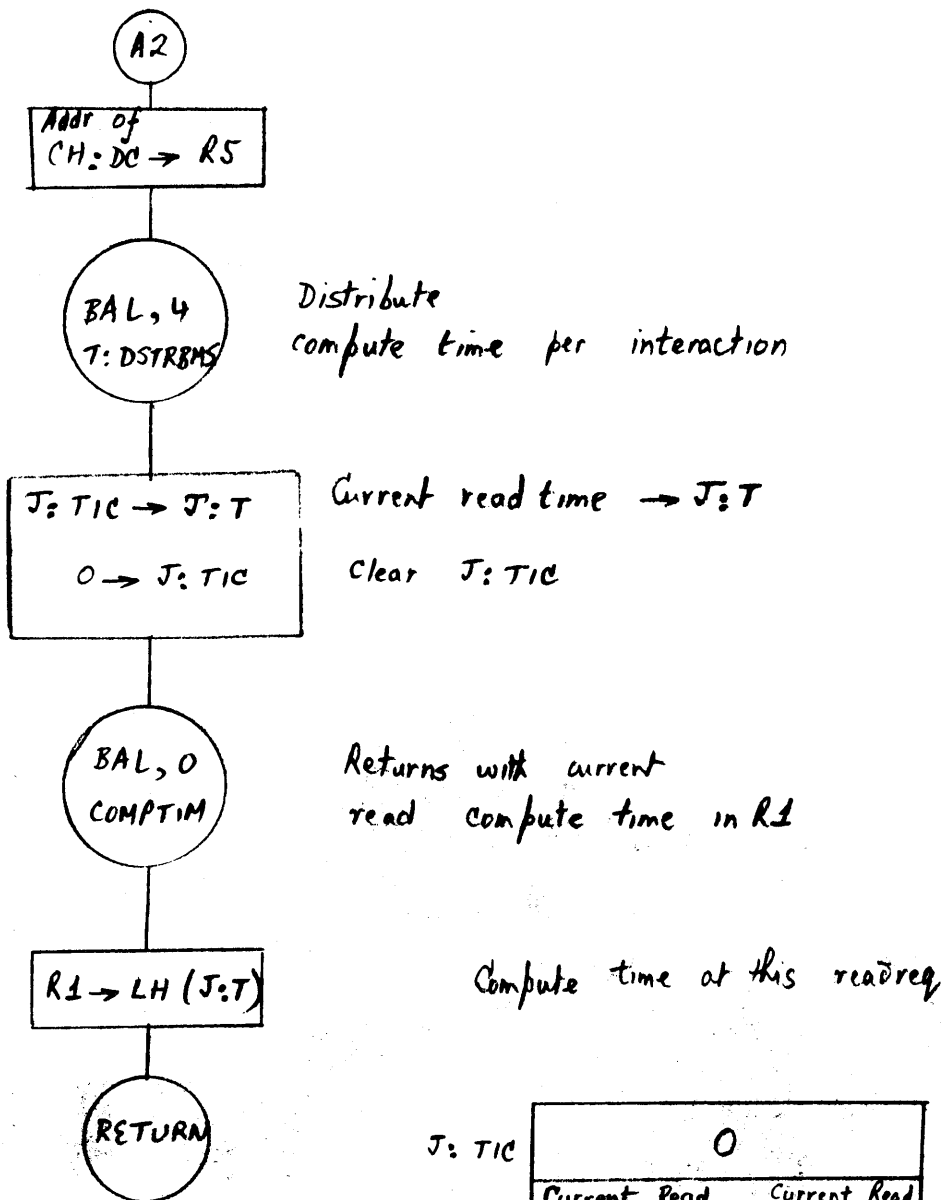 A2
Addr of
CH:DC → R5
BAL, 4
T:DSTRBMS
Distribute
compute time per interaction
J:TIC → J:T
0 → J:TIC
Current read time → J:T
Clear J:TIC
BAL, 0
COMPTIM
Returns with current
read compute time in R1
R1 → LH (J:T)
Compute time at this readreq
RETURN
J:TIC
0
Current Read Current Read